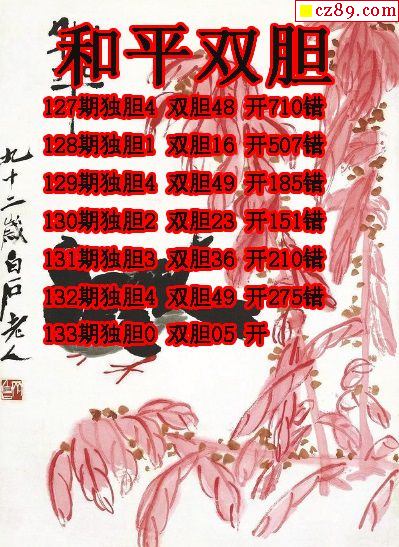 cz89.com
和平双胆
127期独胆4 双胆48 开710错
128期独胆1 双胆16 开507错
129期独胆4 双胆49 开185错
130期独胆2 双胆23 开151错
131期独胆3 双胆36 开210错
132期独胆4 双胆49 开275错
133期独胆0 双胆05 开
九十二岁白石老人